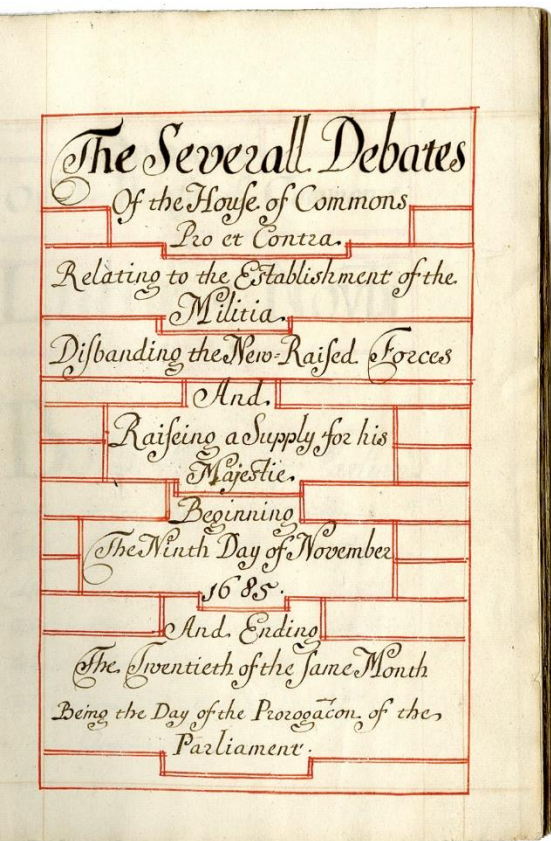 The Severall Debates
Of the House of Commons
Pro et Contra.
Relating to the Establishment of the
Militia.
Diſbanding the New-Raiſed Forces
And.
Raiſeing a Supply for his
Majestie.
Beginning
The Ninth Day of November
1685.
And Ending
The Twentieth of the ſame Month
Being the Day of the Prorogac̄on of the
Parliament.